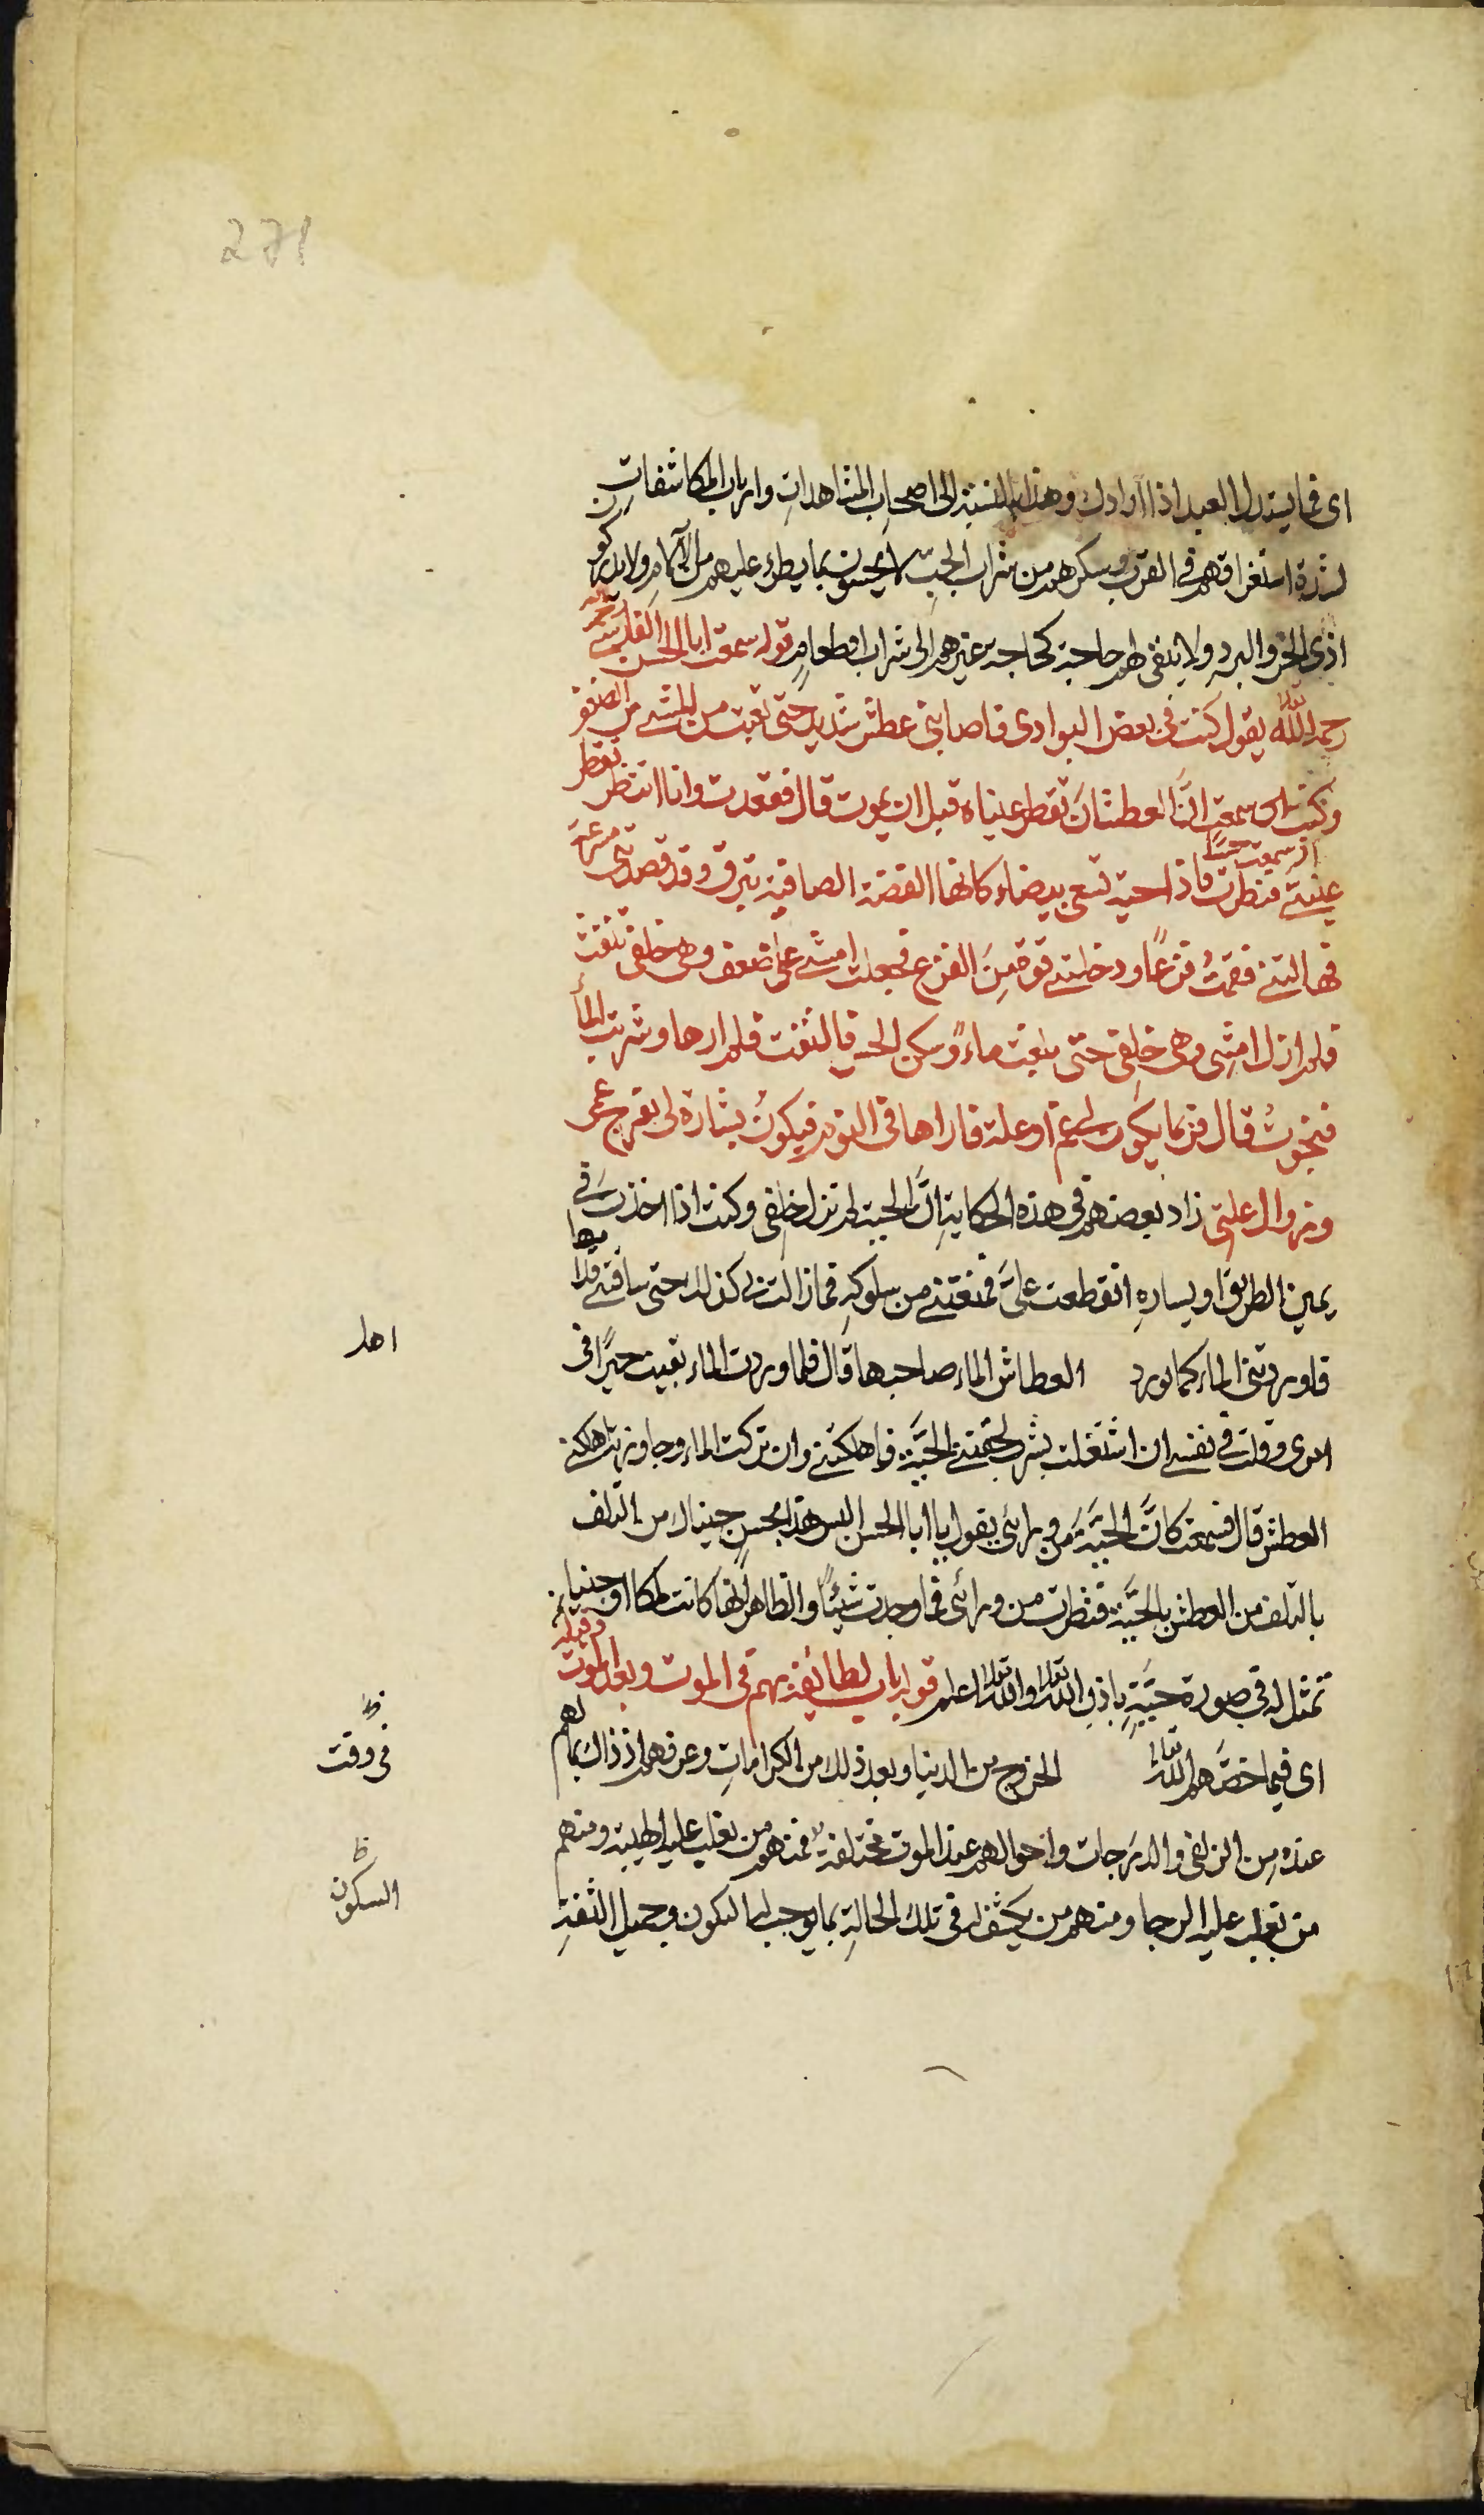 271
اى فما يستدل العبد اذا اوا دلك وهذا بالنسبة الى اصحاب المشاهدات وارباب المكاشفات
لشدة استغراقهم فى القرب وسكرهم من شراب الحب لا يحسون بما يطرء عليهم من الآلام ولا يدركون
اذى الحر والبرد ولا يبقى لهم حاجة كحاجة غيرهم الى شراب او طعام قوله سمعت ابا الحسن الفارسى
رحمه الله تعالى يقول كنت فى بعض البوادى فاصابنى عطش شديد حتى تعبت من المشى من الضعف
وكنت اى سمعت انَّ العطشان تقطر عيناه قبل ان يموت قال فقعدت وانا انتظر تقطر
اذ سمعت حسًا
عينى فنظرت فاذا حية تسعى بيضاء كانها الفضة الصافية تبرق وقد قصدتنى مسرعة
فهالتنى فقمت فزعًا ودخلتنى قوة من الفزع فجعلت امشى على ضعف وهى خلفى تنفث
فلم ازل امشى وهى خلفى حتى بلغت ماءً وسكن الحس فالتفت فلم ارها وشربت الماء
فنجوت قال فربما يكون لى غم او علة فاراها فى النوم فيكون بشارة لى بفرج غمى
وزوال علتى زاد بعضهم فى هذه الحكاية انَّ الحية لم تزل خلفى وكنت اذا اخذت فى
يمين الطريق او يساره انقطعت علىَّ فمنعتنى من سلوكه فما زالت بى كذلك حتى ساقتنى
فاوردتنى الماء كما يورد العطاش الماء صاحبها قال فلما وردت الماء بقيت حيرًا فى
اهل
امرى وقلت فى نفسى ان اشتغلت بشرب لحقتنى الحيَّة فاهلكتنى وان تركت الماء وجاوزته اهلكنى
العطش قال فسمعت كانَّ الحيَّة من ورائى يقول يا ابا الحسن اليس هذا يحسن حينال من التلف
بالتلف من العطش بالحيَّة فنظرت من ورائى فما وجدت شيئًا والظاهر انها كانت ملكا او جنيا
تمثل له فى صورة حيَّةٍ باذن الله تعالى والله تعالى اعلم قوله باب لطائفة بهم فى الموت وبعد الموت
اى فيما خصَّهم الله تعالى الخروج من الدنيا وبعد ذلك من الكرامات وعرفهم اذ ذاك بما لهم
فى وقت
عنده من الزلفى والدرجات واحوالهم عند الموت مختلفة فمنهم من تغلب عليه الهيبة ومنهم
من تغلب عليه الرجا ومنهم من يكشف له فى تلك الحالة بما يوجب له السكون وجميل الثقة
السكون